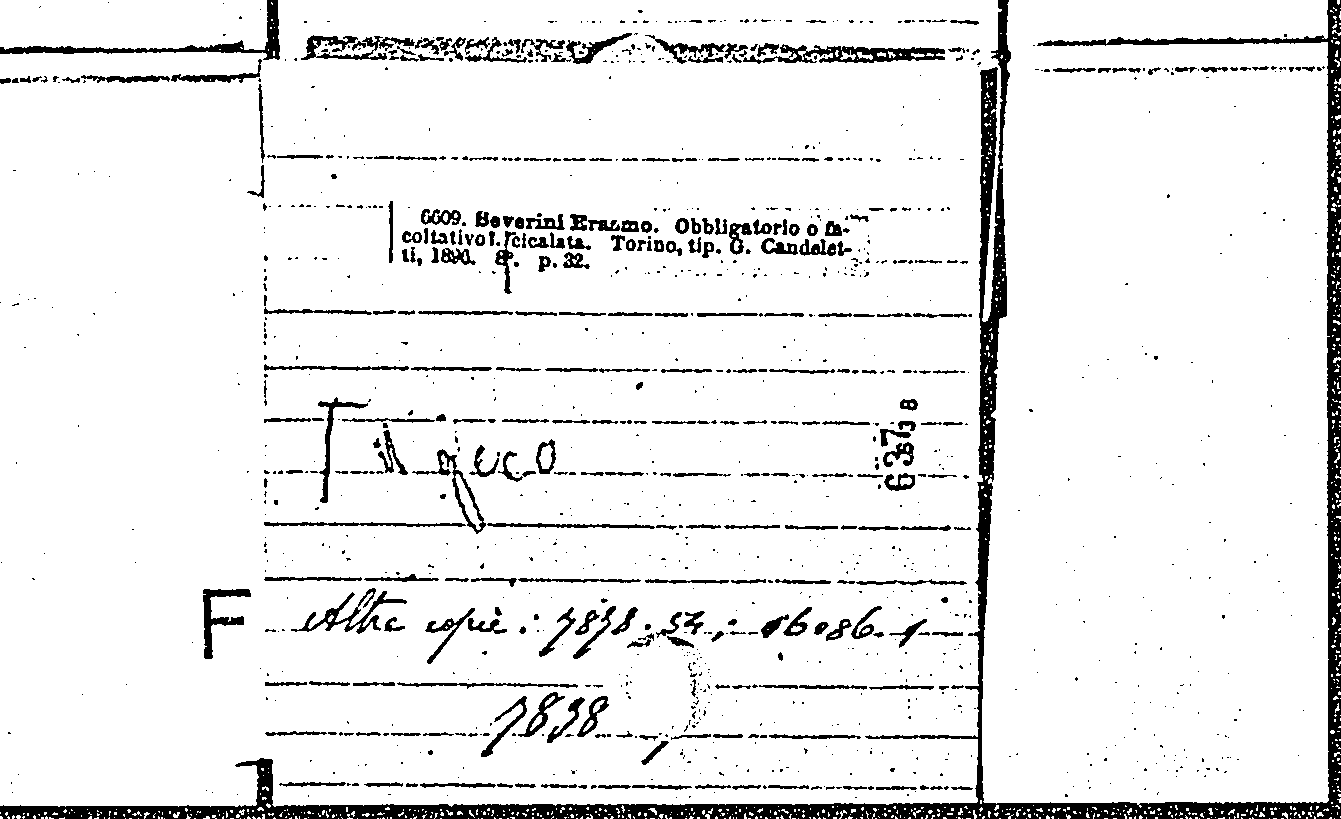 6609. Severini Erasmo. Obbligatorio o fa-
coltativo? cicalata. Torino, tip. G. Candelet-
ti, 1890. 8°. p. 32.
F
Altre copie: 7838.54; 16086.1
7838